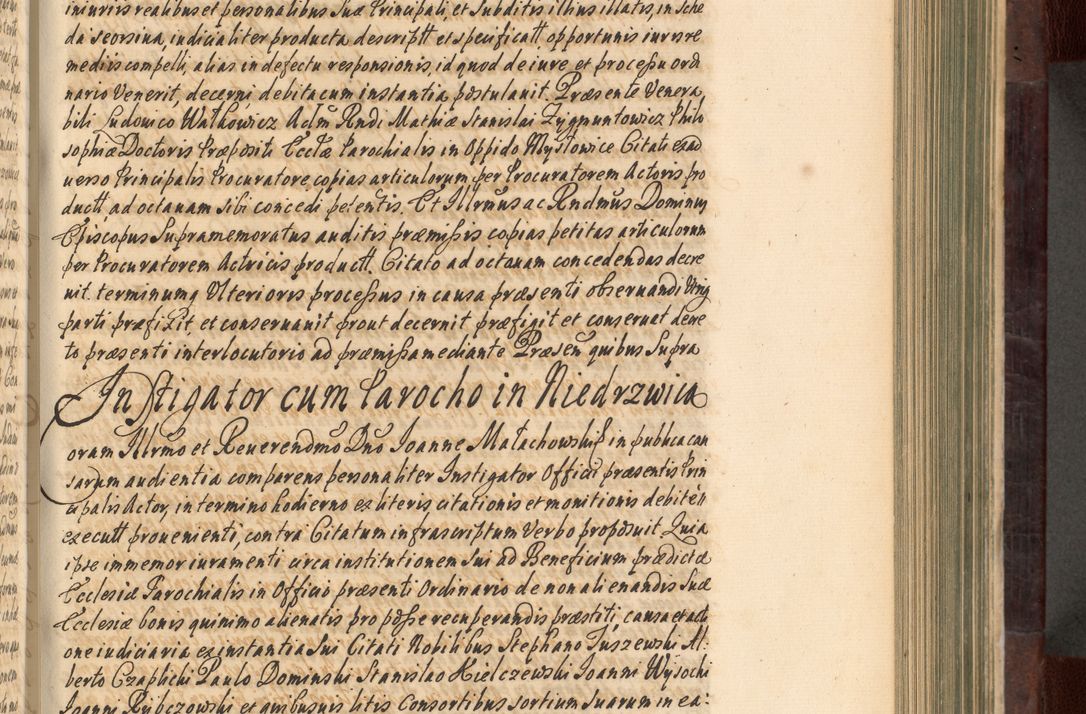 iniuriis realibus et personalibus suæ Principali, et Subditis illius illatis, in sche
da seorsiva, iudicialiter producta descriptt et specificatt, opportunis iuris re
mediis compelli, alias in defectu responsionis, id quod de iure et processu ordi
nario Venerit, decerni debita cum instantia postulauit. Præsente Venera
bili Ludouico Wałkowicz Actm Rndi Mathiæ Stanislai Zygmuntowicz Philo
sophiæ Doctoris Præpositi Ecclæ Parochialis in Oppido Mysłowice Citati ex ad
uerso Principalis Procuratore, copias articulorum per Procuratorem Actoris pro
ductt, ad octauam sibi concedi petentis. Et Illrmus ac Rndmus Dominus
Episcopus Supramemoratus auditis præmissis copias petitas articulorum
per Procuratorem Actricis productt. Citato ad octauam concedendas decre
uit. terminumq Ulterioris processus in causa præsenti obseruandi Utriq
parti præfixit et conseruauit prout decernit præfigit et conseruat decre
to præsenti interlocutorio ad præmissa mediante Præsen quibus Supra
Instigator cum Parocho in Niedrzwica
Coram Illrmo et Reuerendmo Dno Ioanne Małachowski in publica cau
sarum audientia comparens personaliter Instigator Officii præsentis Prin
cipalis Actor, in termino hodierno ex literis citationis et monitionis debitè
executt prouenienti, contra Citatum infrascriptum Verbo proposuit Quia
ipse immemor iuramenti circa institutionem Sui ad Beneficium prædictæ
Ecclesiæ Parochialis in Officio præsenti Ordinario de non alienandis Suæ
Ecclesiæ bonis quinimo alienatis pro posse recuperandis præstiti, causa et acti
one iudiciaria ex instantia Sui Citati Nobilibus Stephano Iuszewski Al
berto Czaplicki Paulo Dominski Stanislao Kielczewski Ioanni Wysocki
Ioanni Rybczowski et quibusuis litis Consortibus sortium Suarum in ea: